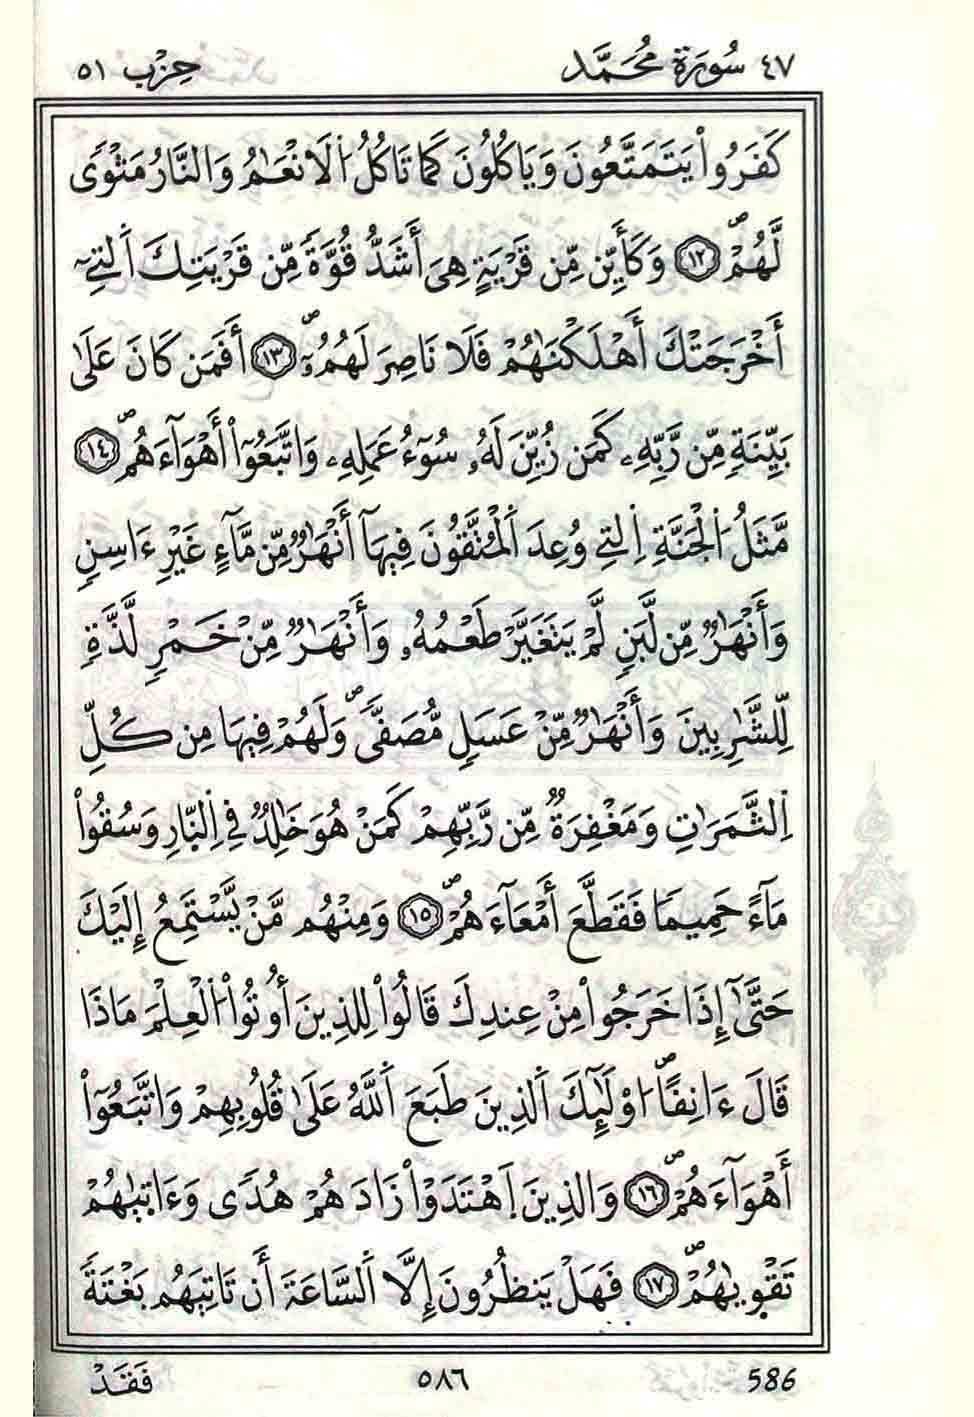 ٤٧ سُورَة مُحَمَّد حِزْب ٥١
كَفَرُواْ يَتَمَتَّعُونَ وَيَاكُلُونَ كَمَا تَاكُلُ اُ۬لَانْعَٰمُ وَالنَّارُ مَثْويٗ
لَّهُمْۖ ١٢ وَكَأَيِّن مِّن قَرْيَةٍ هِيَ أَشَدُّ قُوَّةٗ مِّن قَرْيَتِكَ اَ۬لتِےٓ
أَخْرَجَتْكَ أَهْلَكْنَٰهُمْ فَلَا نَاصِرَ لَهُمُۥٓۖ ١٣ أَفَمَن كَانَ عَلَىٰ
بَيِّنَةٖ مِّن رَّبِّهِۦ كَمَن زُيِّنَ لَهُۥ سُوٓءُ عَمَلِهِۦ وَاتَّبَعُوٓاْ أَهْوَآءَهُمۖ ١٤
مَّثَلُ اُ۬لْجَنَّةِ اِ۬لتِے وُعِدَ اَ۬لْمُتَّقُونَ فِيهَآ أَنْهَٰرٞ مِّن مَّآءٍ غَيْرِ ءَاسِنٖ
وَأَنْهَٰرٞ مِّن لَّبَنٖ لَّمْ يَتَغَيَّرْ طَعْمُهُۥ وَأَنْهَٰرٞ مِّنْ خَمْرٖ لَّذَّةٖ
لِّلشَّٰرِبِينَ وَأَنْهَٰرٞ مِّنْ عَسَلٖ مُّصَفّيٗۖ وَلَهُمْ فِيهَا مِن كُلِّ
اِ۬لثَّمَرَٰتِ وَمَغْفِرَةٞ مِّن رَّبِّهِمْ كَمَنْ هُوَ خَٰلِدٞ فِے اِ۬لنّ۪ارِ وَسُقُواْ
مَآءً حَمِيمٗا فَقَطَّعَ أَمْعَآءَهُمْۖ ١٥ وَمِنْهُم مَّنْ يَّسْتَمِعُ إِلَيْكَ
حَتَّىٰٓ إِذَا خَرَجُواْ مِنْ عِندِكَ قَالُواْ لِلذِينَ أُوتُواْ اُ۬لْعِلْمَ مَاذَا
قَالَ ءَانِفاًۖ ا۟وْلَٰٓئِكَ اَ۬لذِينَ طَبَعَ اَ۬للَّهُ عَلَىٰ قُلُوبِهِمْ وَاتَّبَعُوٓاْ
أَهْوَآءَهُمْۖ ١٦ وَالذِينَ اَ۪هْتَدَوْاْ زَادَهُمْ هُديٗ وَءَات۪يٰهُمْ
تَقْو۪يٰهُمْۖ ١٧ فَهَلْ يَنظُرُونَ إِلَّا اَ۬لسَّاعَةَ أَن تَاتِيَهُم بَغْتَةٗ
586 ٥٨٦ فَقَدْ